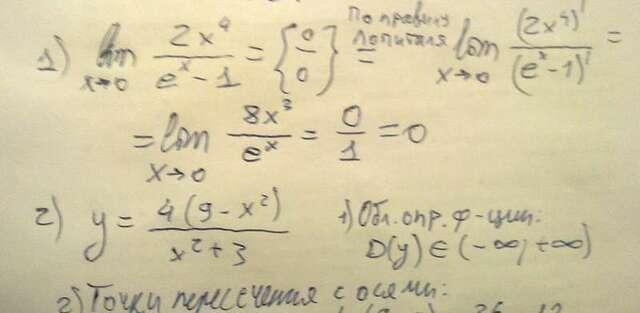 1) lim x→0 2x⁴/(eˣ-1) = {0/0} По правилу Лопиталя = lim x→0 (2x⁴)'/(eˣ-1)' =
= lim x→0 8x³/eˣ = 0/1 = 0
2) y = 4(9-x²)/(x²+3) 1) Обл. опр. ф-ции:
D(y) ∈ (-∞; +∞)
2) Точки пересечения с осями: